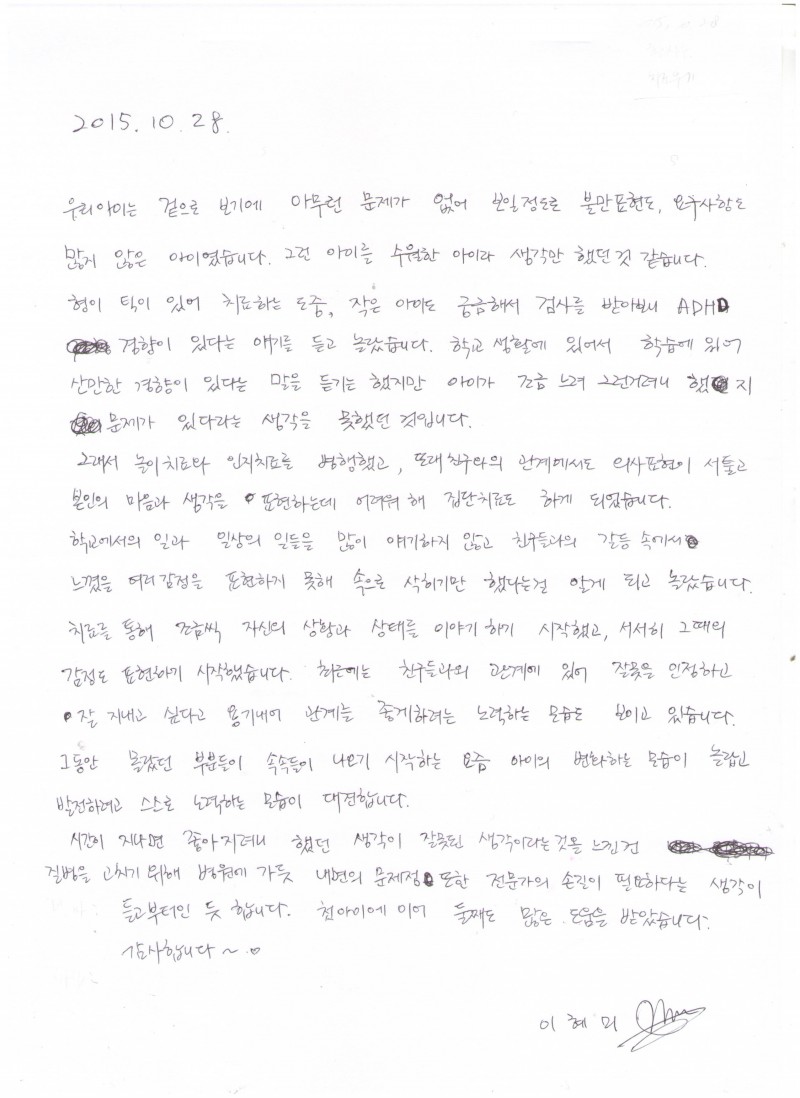 2015. 10. 28.
우리아이는 겉으로 보기에 아무런 문제가 없어 보일정도로 불만표현도, 요구사항도
많지 않은 아이였습니다. 그런 아이를 수월한 아이라 생각만 했던것 같습니다.
형이 틱이 있어 치료하는 도중, 작은 아이도 궁금해서 검사를 받아보니 ADHD
경향이 있다는 얘기를 듣고 놀랐습니다. 학교 생활에 있어서 학습에 있어
산만한 경향이 있다는 말을 듣기는 했지만 아이가 조금 느려 그런거려니 했지
문제가 있다라는 생각을 못했던 것입니다.
그래서 놀이치료와 인지치료를 병행했고, 또래친구와의 관계에서도 의사표현이 서툴고
본인의 마음과 생각을 표현하는데 어려워 해 집단치료도 하게 되었습니다.
학교에서의 일과 일상의 일들을 많이 얘기하지 않고 친구들과의 갈등 속에서
느꼈을 여러감정을 표현하지 못해 속으로 삭히기만 했다는걸 알게 되고 놀랐습니다.
치료를 통해 조금씩 자신의 상황과 상태를 이야기 하기 시작했고, 서서히 그때의
감정도 표현하기 시작했습니다. 최근에는 친구들과의 관계에 있어 잘못을 인정하고
잘 지내고 싶다고 용기내어 관계를 좋게하려는 노력하는 모습도 보이고 있습니다.
그동안 몰랐던 부분들이 속속들이 나오기 시작하는 요즘 아이의 변화하는 모습이 놀랍고
발전하려고 스스로 노력하는 모습이 대견합니다.
시간이 지나면 좋아지려니 했던 생각이 잘못된 생각이라는것을 느낀건
질병을 고치기 위해 병원에 가듯 내면의 문제점 또한 전문가의 손길이 필요하다는 생각이
들고부터인 듯 합니다. 첫아이에 이어 둘째도 많은 도움을 받았습니다.
감사합니다~
이혜미